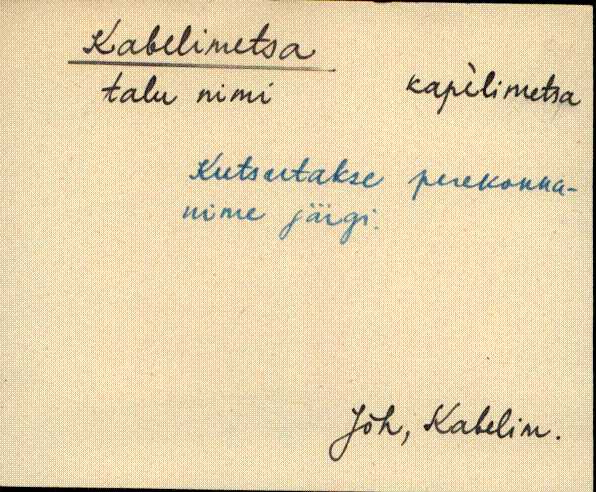 Kabelimetsa
talu nimi kapèlimetsa
Kutsutakse perekonna-
nime järgi.
Jõh, Kabelim.